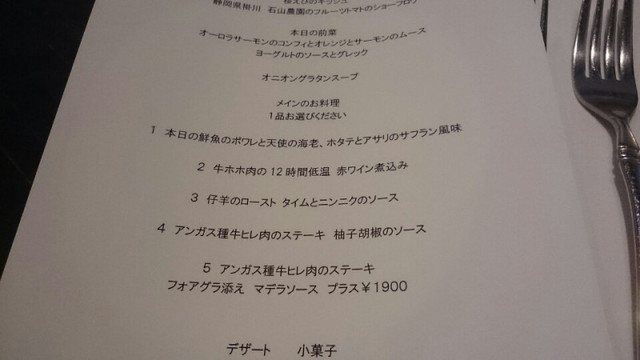 桜えびのキッシュ
静岡県掛川 石山農園のフルーツトマトのショーフロア
本日の前菜
オーロラサーモンのコンフィとオレンジとサーモンのムース
ヨーグルトのソースとグレック
オニオングラタンスープ
メインのお料理
1品お選びください
1 本日の鮮魚のポワレと天使の海老、ホタテとアサリのサフラン風味
2 牛ホホ肉の12時間低温 赤ワイン煮込み
3 仔羊のロースト タイムとニンニクのソース
4 アンガス種牛ヒレ肉のステーキ 柚子胡椒のソース
5 アンガス種牛ヒレ肉のステーキ
フォアグラ添え マデラソース プラス¥1900
デザート 小菓子